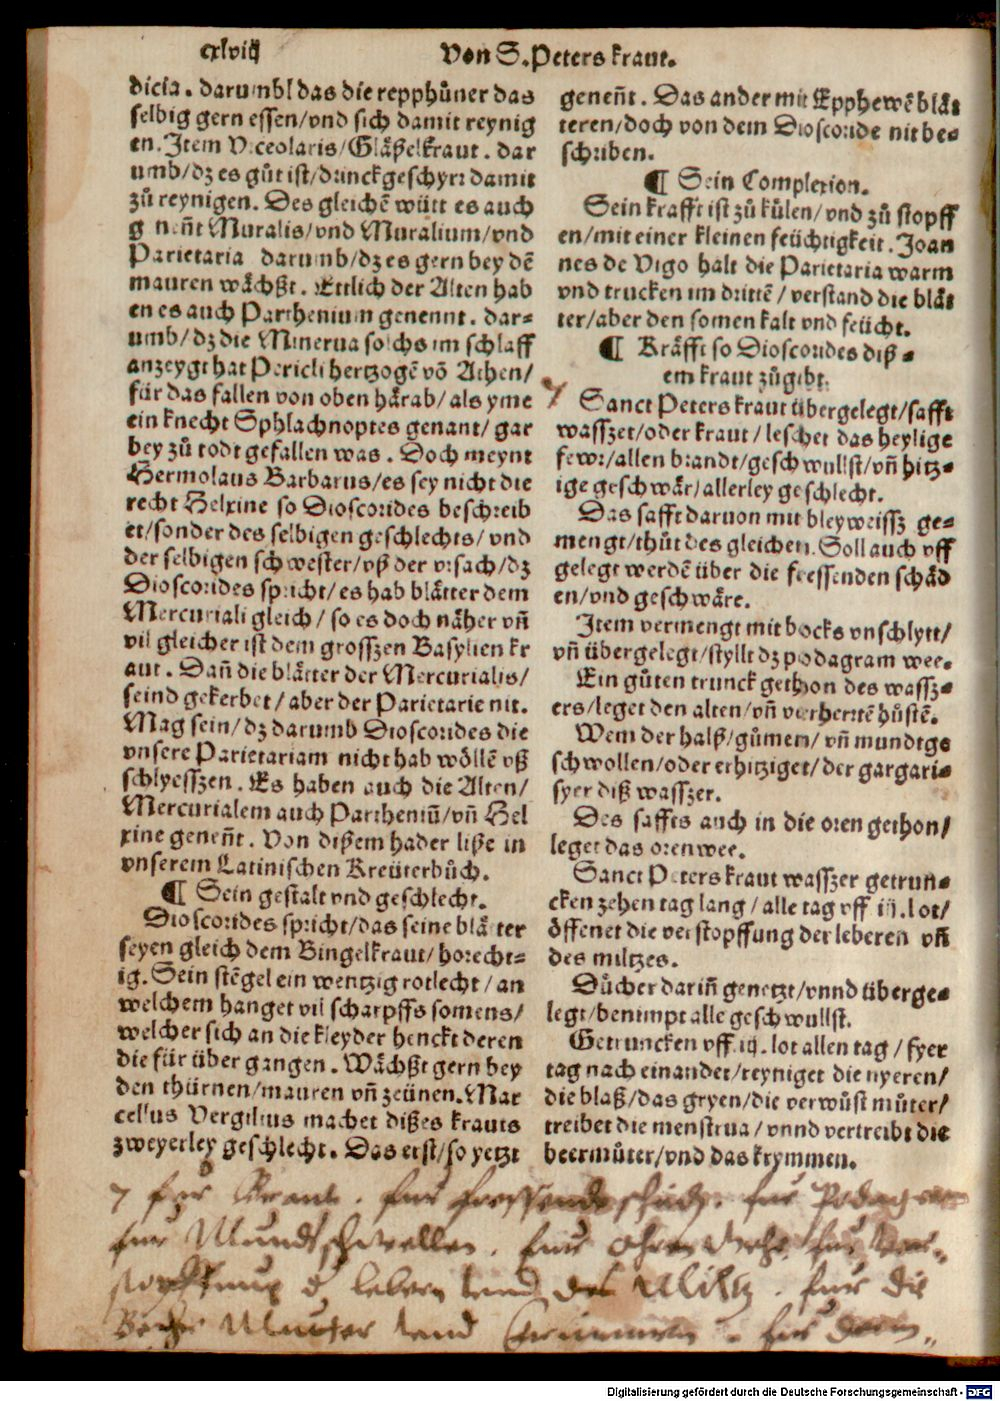 cxlviij
Von S. Peters kraut.
dicia. darumbl das die repphůner das
selbig gern essen/vnd sich damit reynig
en. Item Vrceolaris/Gläßelkraut. dar
umb/dz es gůt ist/drinckgeschyrr damit
zů reynigen. Des gleichē würt es auch
g neñt Muralis/vnd Muralium/vnd
Parietaria darumb/dz es gern bey dē
mauren wächßt. Ettlich der Alten hab
en es auch Parthenium genennt. dar⸗
umb/dz die Minerua solchs im schlaff
anzeygt hat Pericli hertzogē vō Athen/
für das fallen von oben härab/als yme
ein knecht Sphlachnoptes genant/gar
bey zů todt gefallen was. Doch meynt
Hermolaus Barbarus/es sey nicht die
recht Helxine so Dioscorides beschreib
et/sonder des selbigen geschlechts/vnd
der selbigen schwester/vß der vrsach/dz
Dioscorides spricht/es hab blätter dem
Mercuriali gleich/so es doch näher vñ
vil gleicher ist dem grosszen Basylien kr
aut. Dañ die blätter der Mercurialis/
seind gekerbet/aber der Parietarie nit.
Mag sein/dz darumb Dioscorides die
vnsere Parietariam nicht hab wöllē vß
schlyesszen. Es haben auch die Alten/
Mercurialem auch Partheniū/vñ Hel
xine geneñt. Von dißem hader liße in
vnserem Latinischen Kreüterbůch.
¶ Sein gestalt vnd geschlecht.
Dioscorides spricht/das seine blätter
seyen gleich dem Bingelkraut/horecht⸗
ig. Sein stēgel ein wentzig rotlecht/an
welchem hanget vil scharpffs somens/
welcher sich an die kleyder henckt deren
die für über gangen. Wächßt gern bey
den thürnen/mauren vñ zeünen. Mar
cellus Vergilius machet dißes krauts
zweyerley geschlecht. Das erst/so yetzt
geneñt. Das ander mit Epphewē blät
teren/doch von dem Dioscoride nit be⸗
schriben.
¶ Sein Complexion.
Sein krafft ist zů külen/vnd zů stopff
en/mit einer kleinen feüchtigkeit. Joan
nes de Vigo halt die Parietaria warm
vnd trucken im drittē/verstand die blät
ter/aber den somen kalt vnd feücht.
¶ Kräfft so Dioscorides diß⸗
em kraut zůgibt.
Sanct Peters kraut übergelegt/safft
wasszer/oder kraut/leschet das heylige
fewr/allen brandt/geschwullst/vñ hitz⸗
ige geschwär/allerley geschlecht.
Das safft daruon mit bleyweissz ge⸗
mengt/thůt des gleichen. Soll auch vff
gelegt werdē über die fressenden schäd
en/vnd geschwäre.
Item vermengt mit bocks vnschlytt/
vñ übergelegt/styllt dz podagram wee.
Ein gůten trunck gethon des wassz⸗
ers/leget den alten/vñ verhertē hůstē.
Wem der halß/gůmen/vñ mundt ge
schwollen/oder erhitziget/der gargari⸗
syer diß wasszer.
Des saffts auch in die oren gethon/
leget das orenwee.
Sanct Peters kraut wasszer getrun⸗
cken zehen tag lang/alle tag vff iij. lot/
öffenet die verstopffung der leberen vñ
des miltzes.
Důcher dariñ genetzt/vnnd überge⸗
legt/benimpt alle geschwullst.
Getruncken vff iij. lot allen tag/fyer
tag nach einander/reyniget die nyeren/
die blaß/das gryen/die verwüst můter/
treibet die menstrua/vnnd vertreibt die
beermůter/vnd das krymmen.
für Brant. für fressende schäd. für Podagram
für Mundtschwellen. für Ohren wehe. für ver⸗
stopffung d' lebern vnd des Miltz. für die
Mutter vnd Grimmen. für
Digitalisierung gefördert durch die Deutsche Forschungsgemeinschaft - DFG